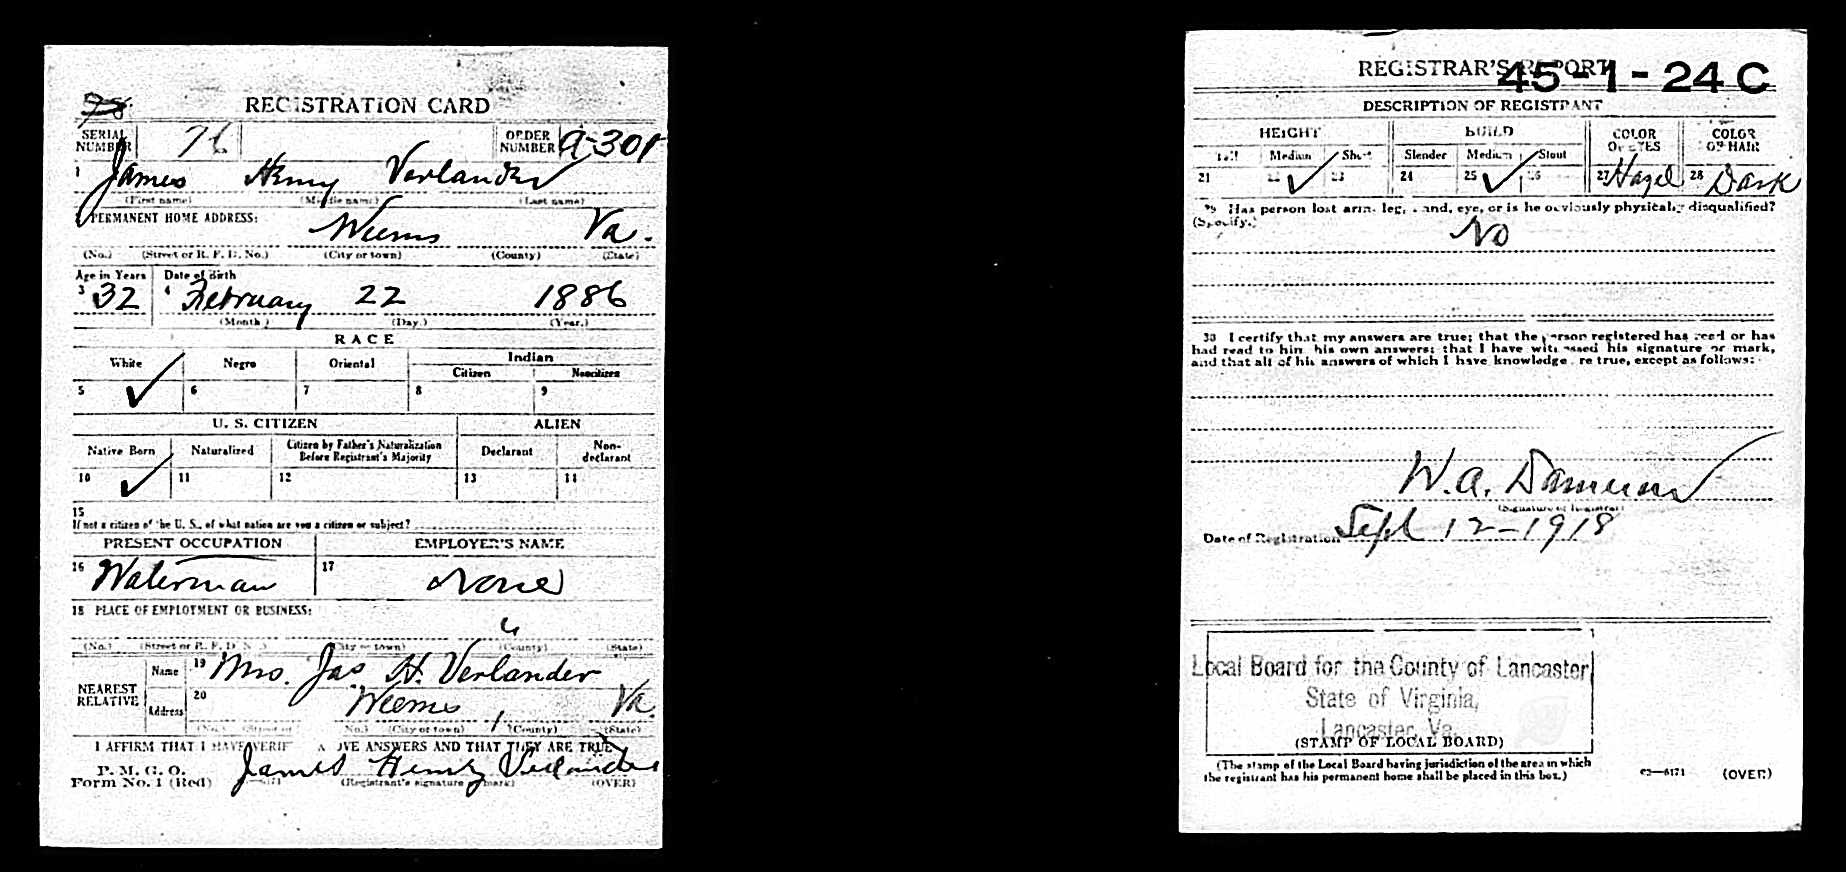 78
REGISTRATION CARD
SERIAL NUMBER 76 ORDER NUMBER A-301
1 James Henry Verlander
(First name) (Middle name) (Last name)
PERMANENT HOME ADDRESS:
Weems Va.
(No.) (Street or R. F. D. No.) (City or town) (County) (State)
Age in Years Date of Birth
3 32 4 February 22 1886
(Month.) (Day.) (Year.)
RACE
White Negro Oriental Indian
Citizen Noncitizen
5 ✓ 6 7 8 9
U. S. CITIZEN ALIEN
Native Born Naturalized Citizen by Father's Naturalization Before Registrant's Majority Declarant Non-declarant
10 ✓ 11 12 13 14
15
If not a citizen of the U. S., of what nation are you a citizen or subject?
PRESENT OCCUPATION EMPLOYER'S NAME
16 Waterman 17 None
18 PLACE OF EMPLOYMENT OR BUSINESS:
"
(No.) (Street or R. F. D. No.) (City or town) (County) (State)
NEAREST RELATIVE Name 19 Mrs. Jas H. Verlander
Address 20 Weems, Va.
(No.) (Street or No.) (City or town) (County) (State)
I AFFIRM THAT I HAVE VERIFIED ABOVE ANSWERS AND THAT THEY ARE TRUE
P. M. G. O.
Form No. 1 (Red) James Henry Verlander
(Registrant's signature or mark) (OVER)
REGISTRAR'S REPORT 45-1-24 C
DESCRIPTION OF REGISTRANT
HEIGHT BUILD COLOR OF EYES COLOR OF HAIR
Tall Medium Short Slender Medium Stout
21 22 ✓ 23 24 25 ✓ 26 27 Hazel 28 Dark
29 Has person lost arm, leg, hand, eye, or is he obviously physically disqualified?
(Specify.) No
30 I certify that my answers are true; that the person registered has read or has
had read to him his own answers; that I have witnessed his signature or mark,
and that all of his answers of which I have knowledge are true, except as follows:
W. A. Dameron
(Signature of Registrar)
Date of Registration Sept 12-1918
Local Board for the County of Lancaster
State of Virginia,
Lancaster, Va.
(STAMP OF LOCAL BOARD)
(The stamp of the Local Board having jurisdiction of the area in which
the registrant has his permanent home shall be placed in this box.)
03—6171 (OVER)